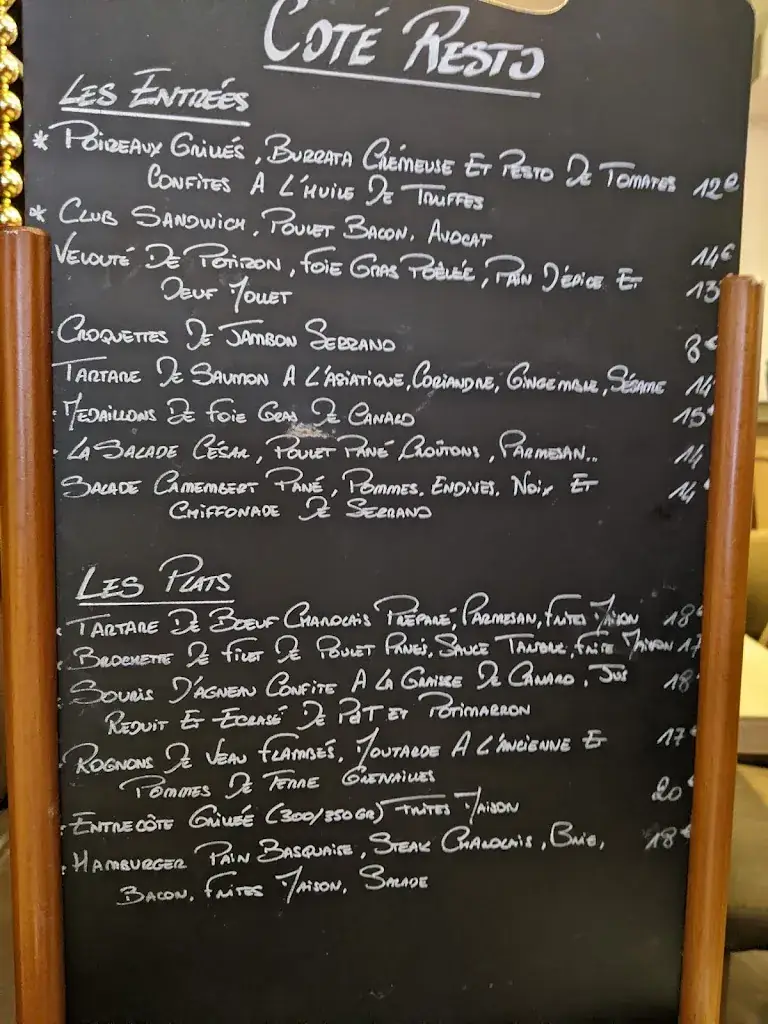 COTÉ RESTO
LES ENTRÉES
* POIREAUX GRILLÉS, BURRATA CRÉMEUSE ET PESTO DE TOMATES 12€
CONFITES A L'HUILE DE TRUFFES
* CLUB SANDWICH, POULET BACON, AVOCAT 14€
VELOUTÉ DE POTIRON, FOIE GRAS POÊLÉE, PAIN D'ÉPICE ET 13
OEUF MOLLET
CROQUETTES DE JAMBON SERRANO 8€
TARTARE DE SAUMON A L'ASIATIQUE, CORIANDRE, GINGEMBRE, SÉSAME 14
MEDAILLONS DE FOIE GRAS DE CANARD 15€
LA SALADE CÉSAR, POULET PANÉ, CROÛTONS, PARMESAN.. 14
SALADE CAMEMBERT PANÉ, POMMES, ENDIVES, NOIX ET 14€
CHIFFONADE DE SERRANO
LES PLATS
TARTARE DE BOEUF CHAROLAIS PRÉPARÉ, PARMESAN, FRITES MAISON 18€
BROCHETTE DE FILET DE POULET PANÉ, SAUCE FRITE MAISON 17
SOURIS D'AGNEAU CONFITE A LA GRAISSE DE CANARD, JUS 18€
REDUIT ET ECRASÉ DE PDT ET POTIMARRON
ROGNONS DE VEAU FLAMBÉS, MOUTARDE A L'ANCIENNE ET 17€
POMMES DE TERRE GRENAILLES
ENTRECÔTE GRILLÉE (300/350GR) FRITES MAISON 20€
HAMBURGER PAIN BASQUAISE, STEAK CHAROLAIS, BRIE, 18€
BACON, FRITES MAISON, SALADE